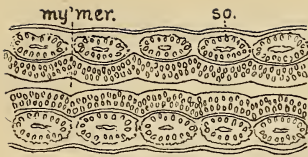 my'mer. so.